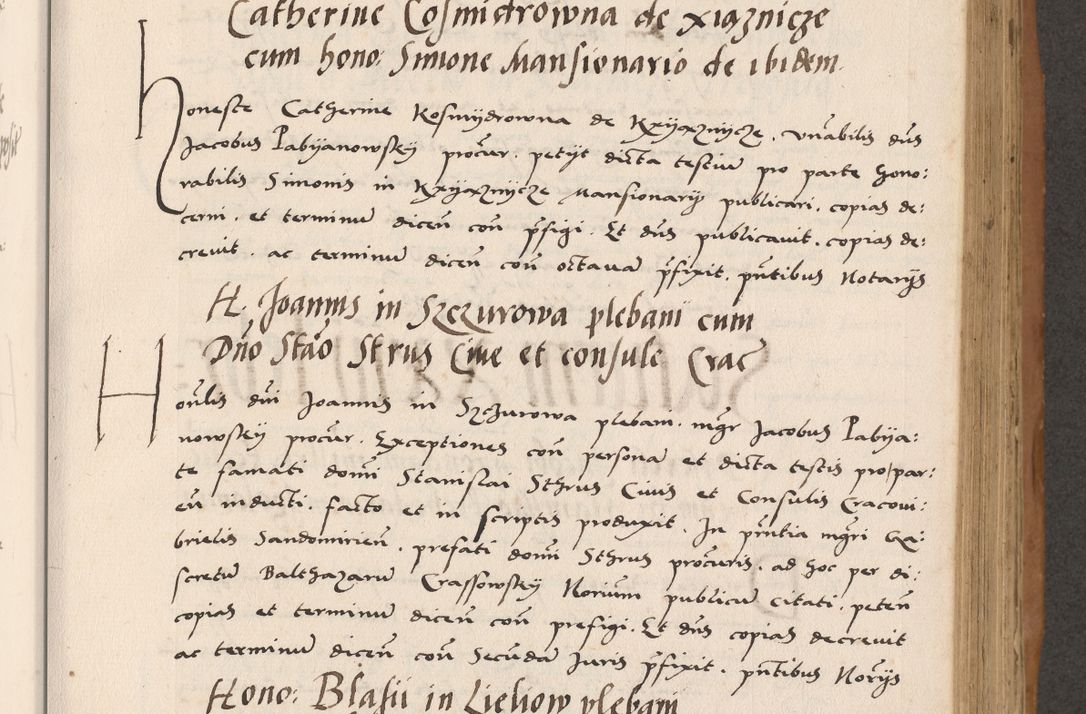 Catherine Cosmidrowna de xiąznicze
cum hono: Simone Mansionario de ibidem
Honeste Catherine Kosmydrowna de Kxyąznycze, vnābilis dns
Jacobus Pabyanowsky procur. petyt dicta testium pro parte hono:
rabilis Simonis in Kxyąznycze Mansionarij publicari, copias de:
cerni, et terminu dicen con pfigi. Et dns publicauit, copias de:
creuit, ac terminu dicen con octaua pfixit, pntibus Notarijs
H. Joannis in Szczurowa plebani cum
Dno Stao Strus Ciue et consule Crac
Honlis dni Joannis in Szczurowa plebani, mgr Jacobus Pabya:
nowsky procur. Exceptiones con persona et dicta testis pro par:
te famati domi Stanislai Sthrus Ciuis et Consulis Cracoui:
en inducti, facto et in scriptis produxit. In pntia mgri Ga:
brielis Sandomirien, prefati domi Sthrus procuris, ad hoc per di:
scretu Balthazaru Crassowsky Norium publicu citati, peten
copias et terminu dicen con prefigi. Et dns copias decreuit
ac terminu dicen con Secunda Juris pfixit, pntibus Norijs
Hono: Blasii in Lieliow plebani